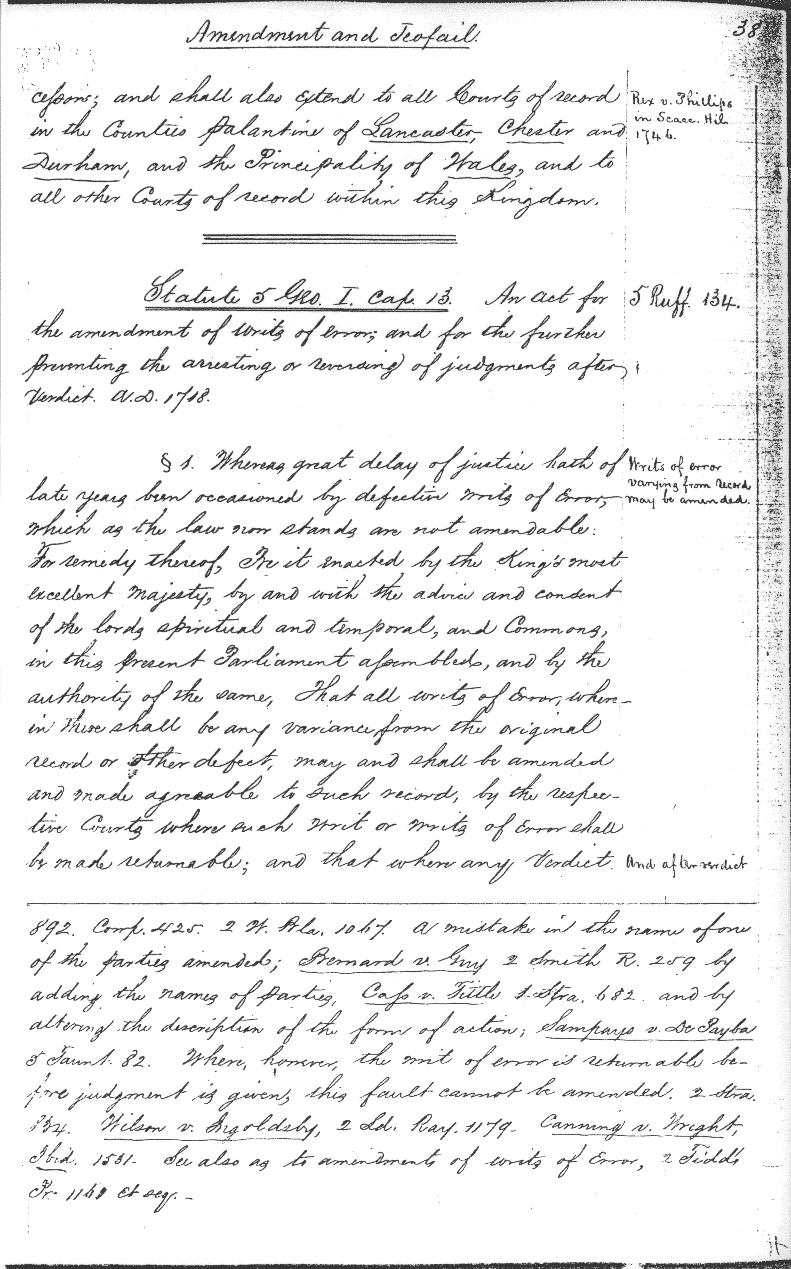 Amendment and Jeofail.
38
cessors; and shall also extend to all Courts of record
in the Counties palantine of Lancaster, Chester and
Durham, and the Principality of Wales, and to
all other Courts of record within this Kingdom.
Rex v. Phillips
in Scacc. Hil.
1746.
Statute 5 Geo. I. cap. 13. An act for
5 Ruff. 134.
the amendment of writs of error; and for the further
preventing the arresting or reversing of judgments after
Verdict. A.D. 1718.
§ 1. Whereas great delay of justice hath of
late years been occasioned by defective writs of Error,
which as the law now stands are not amendable:
For remedy thereof, Be it enacted by the King's most
excellent Majesty, by and with the advice and consent
of the lords spiritual and temporal, and Commons,
in this present Parliament assembled, and by the
authority of the same, That all writs of Error, where-
in there shall be any variance from the original
record or other defect, may and shall be amended
and made agreeable to such record, by the respec-
tive Courts where such writ or writs of Error shall
be made returnable; and that where any Verdict
Writs of error
varying from record
may be amended.
And after verdict
892. Comp. 425. 2 W. Bla. 1067. A mistake in the name of one
of the parties amended; Bernard v. Guy 2 Smith R. 259 by
adding the names of parties, Cass v. Title 1 Stra. 682. and by
altering the description of the form of action; Sampayo v. De Payba
5 Taunt. 82. Where, however, the writ of error is returnable be-
fore judgment is given, this fault cannot be amended. 2 Stra.
Wilson v. Ingoldsby, 2 Ld. Ray. 1179. Canning v. Wright,
Ibid. 1531. See also as to amendments of writs of Error, 2 Tidd's
Pr. et seq. -